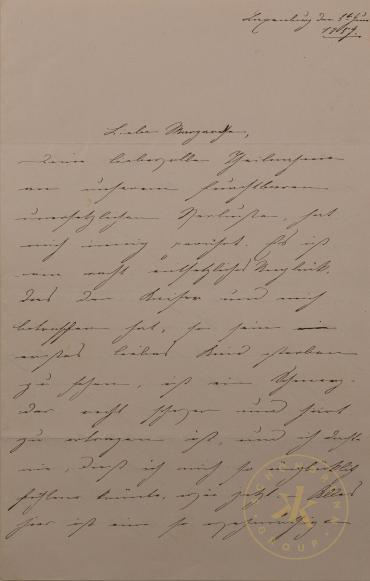 Laxenburg den 5ᵗ Juni
1857.
Liebe Margarethe,
Deine liebevolle Theilnahme
an unserem furchtbaren
unersetzlichen Verluste, hat
mich innig gerührt. Es ist
ein recht entsetzliches Unglück,
das den Kaiser und mich
betroffen hat, so sein
erstes liebes Kind sterben
zu sehen, ist ein Schmerz,
der recht schwer und hart
zu ertragen ist, und ich dachte
nie, daß ich mich so unglücklich
fühlen könnte, wie jetzt. Alles
hier ist eine so
SCHÖNBRUNN
GROUP